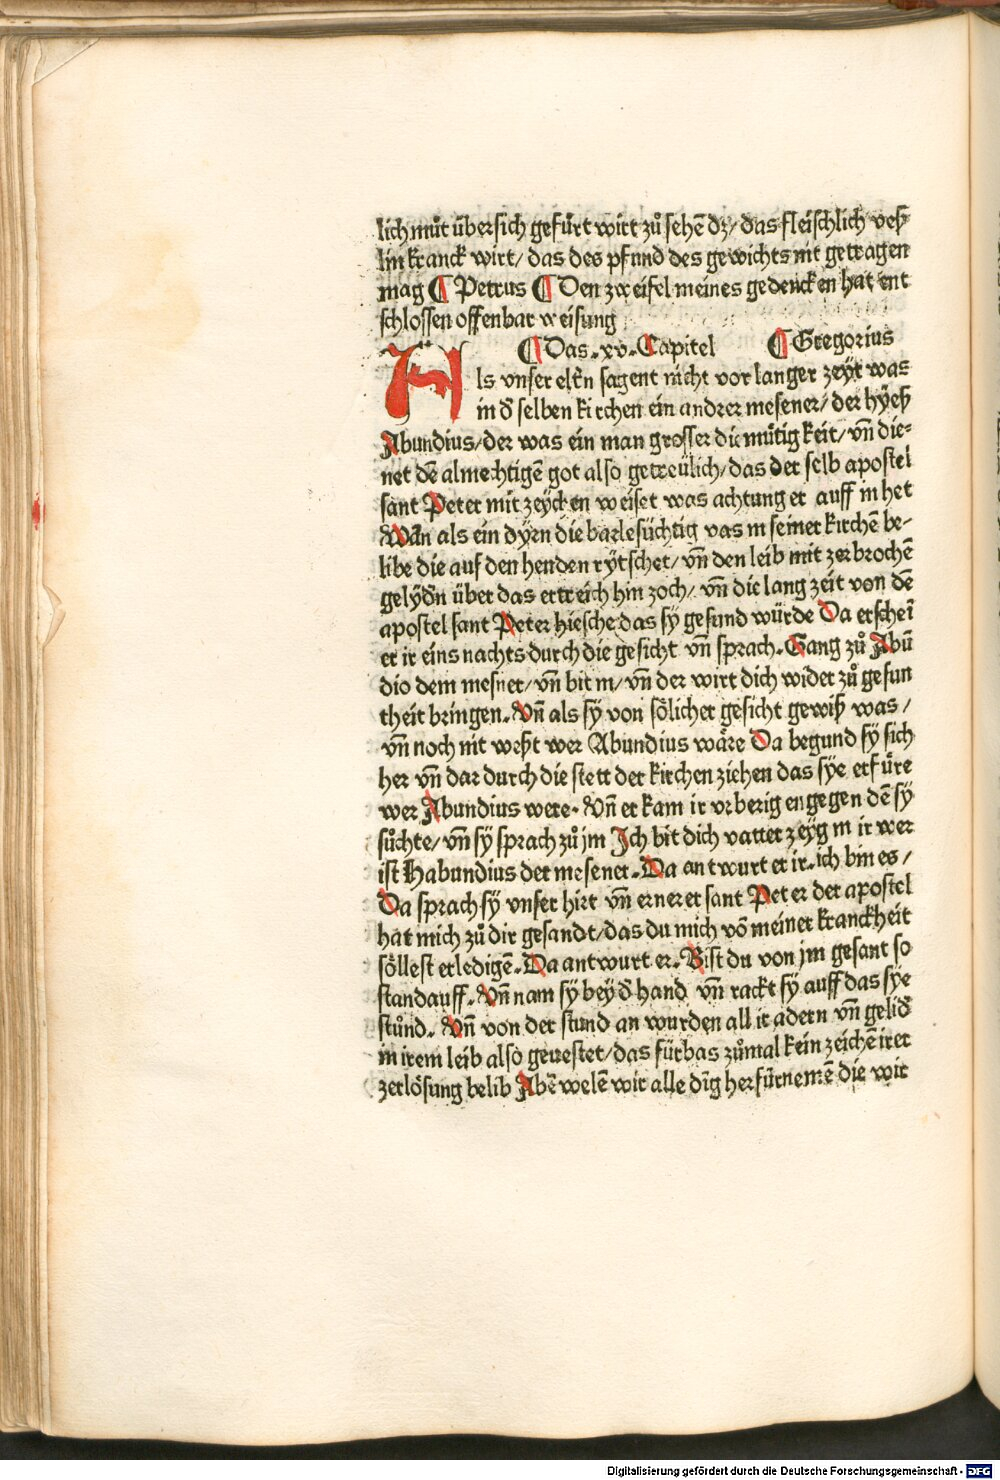 lich můt übersich gefürt wirt zů sehē dz/ das fleischlich veß
lin kranck wirt/ das des pfund des gewichts nit getragen
mag ¶ Petrus ¶ Den zweifel meines gedencken hat ent
schlossen offenbar weisung
¶ Das .xv. Capitel ¶ Gregorius
Als vnser eltn̄ sagent nicht vor langer zeyt was
in d̄ selben kirchen ein andrer mesener/ der hyeß
Abundius/ der was ein man grosser diemütigkeit/ vn̄ die-
net dē almechtigē got also getreülich/ das der selb apostel
sant Peter mit zeychen weiset was achtung er auff in het
Wān als ein dyrn die barlesüchtig vas in seiner kirchē be-
libe die auf den henden rytschet/ vn̄ den leib mit zerbrochē
gelydn̄ über das ertreich hin zoch/ vn̄ die lang zeit von dē
apostel sant Peter hiesche das sy gesund würde Da erschei̅
er ir eins nachts durch die gesicht vn̄ sprach. Gang zů Abū
dio dem mesner/ vn̄ bit in/ vn̄ der wirt dich wider zů gesun
theit bringen. Vn̄ als sy von sölicher gesicht gewiß was/
vn̄ noch nit weßt wer Abundius wäre Da begund sy sich
her vn̄ dar durch die stett der kirchen ziehen das sye erfüre
wer Abundius were. Vn̄ er kam ir vrberig engegen dē sy
süchte/ vn̄ sy sprach zů jm Jch bit dich vatter zeyg in ir wer
ist Habundius der mesener. Da antwurt er ir. ich bin es/
Da sprach sy vnser hirt vn̄ ernerer sant Peter der apostel
hat mich zů dir gesandt/ das du mich vō meiner kranckheit
söllest erledigē. Da antwurt er. Bist du von jm gesant so
standauff. Vn̄ nam sy bey d̄ hand vn̄ rackt sy auff das sye
stůnd. Vn̄ von der stund an wurden all ir adern vn̄ gelid̄
in irem leib also geuestet/ das fürbas zůmal kein zeichē irer
zerlösung belib Abē welē wir alle di̅g herfürnemē die wir
Digitalisierung gefördert durch die Deutsche Forschungsgemeinschaft - DFG